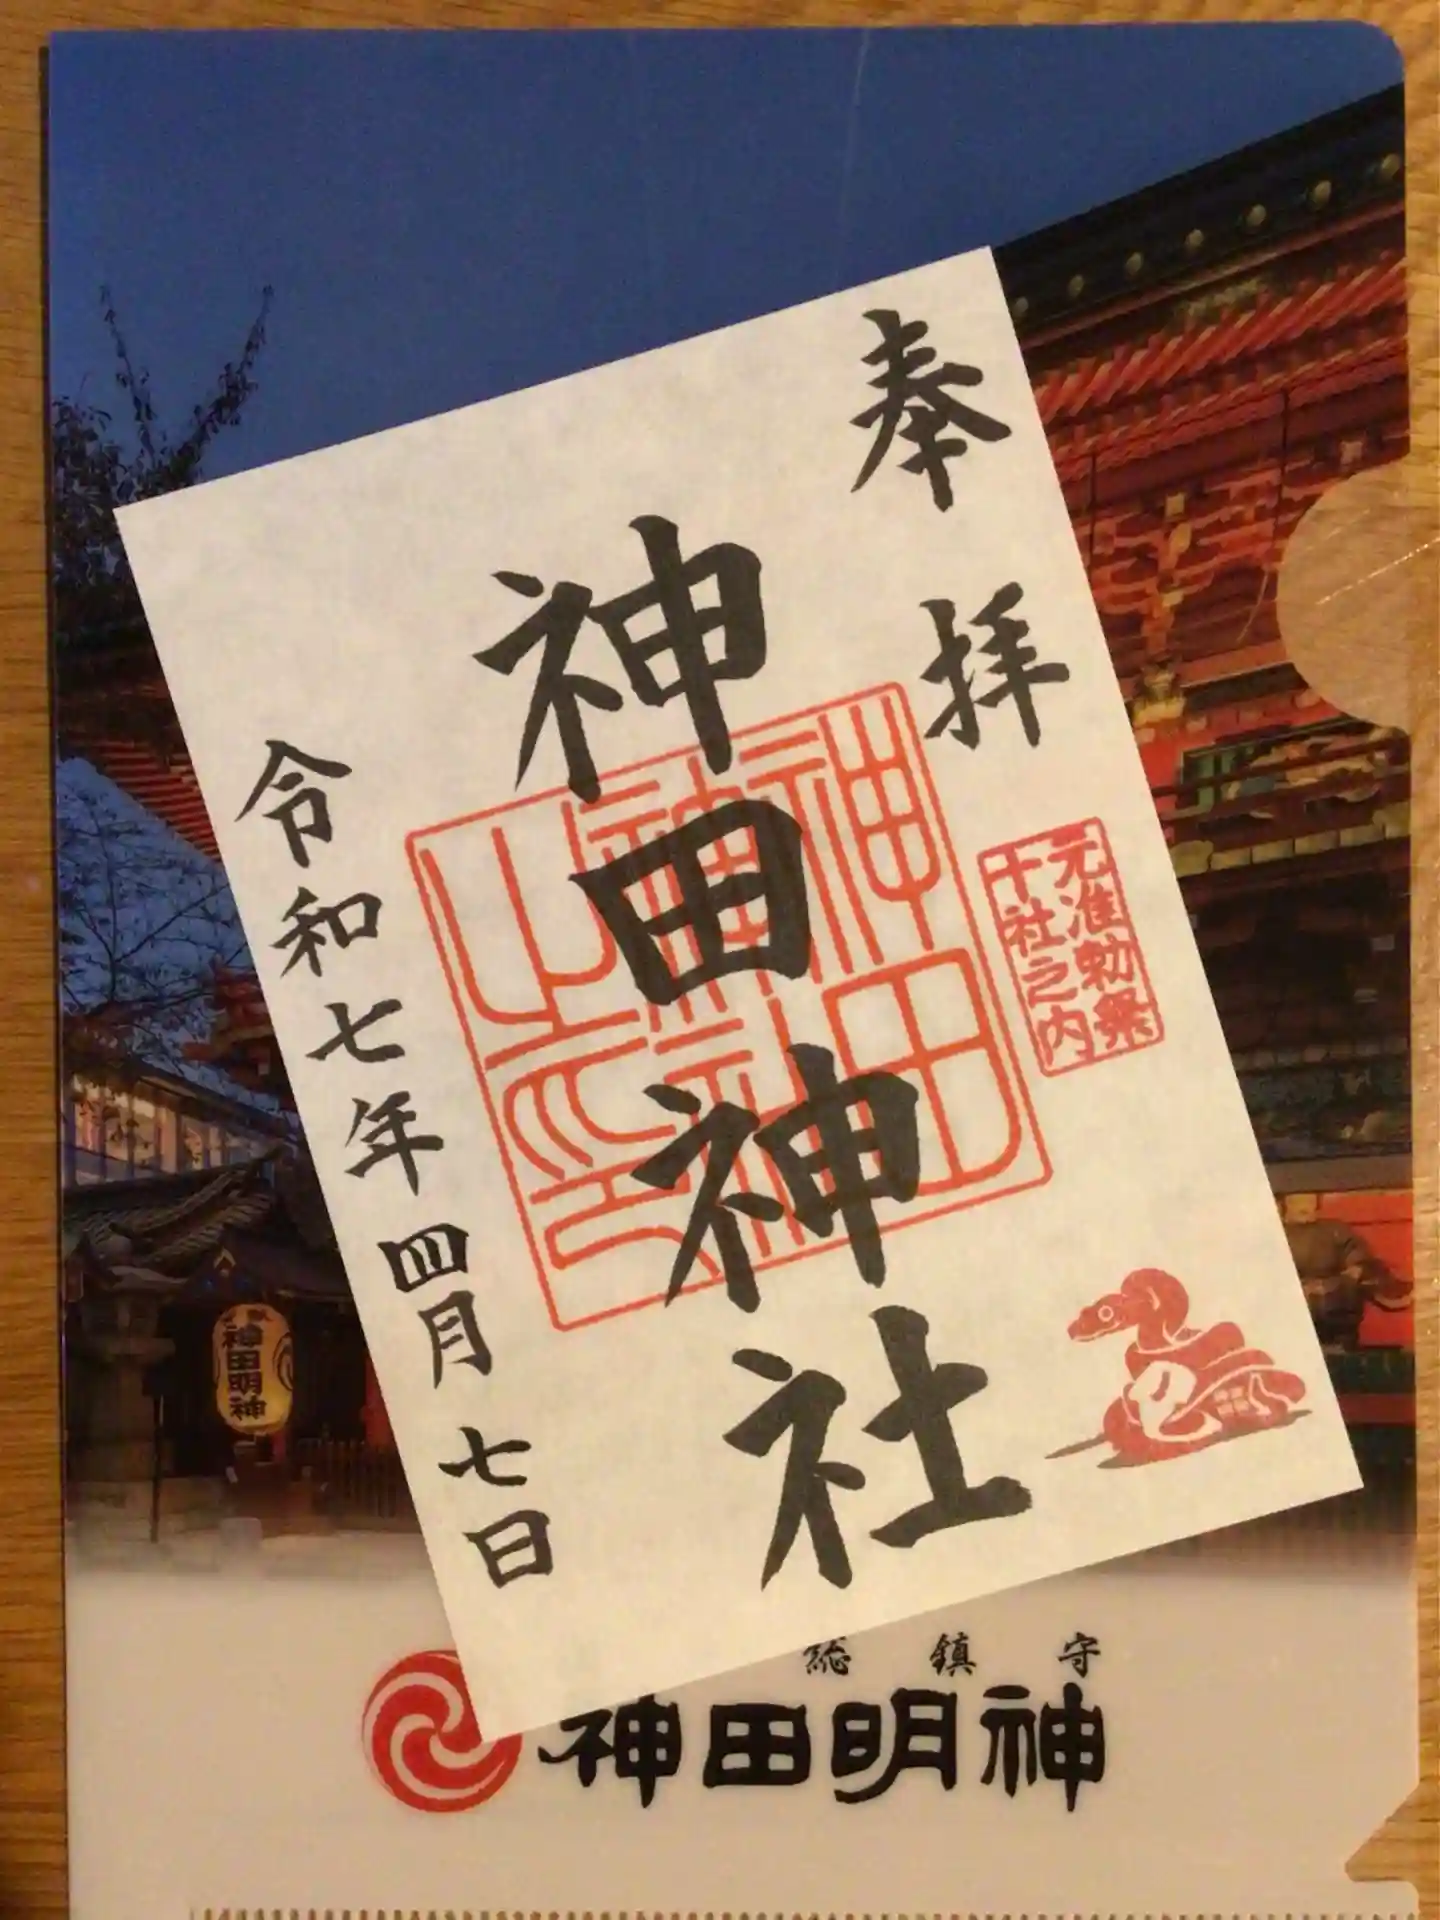 奉拝
元准勅祭
十社之内
神田神社
神田神社之印
令和七年四月七日
巳
神田明神
総鎮守
神田明神